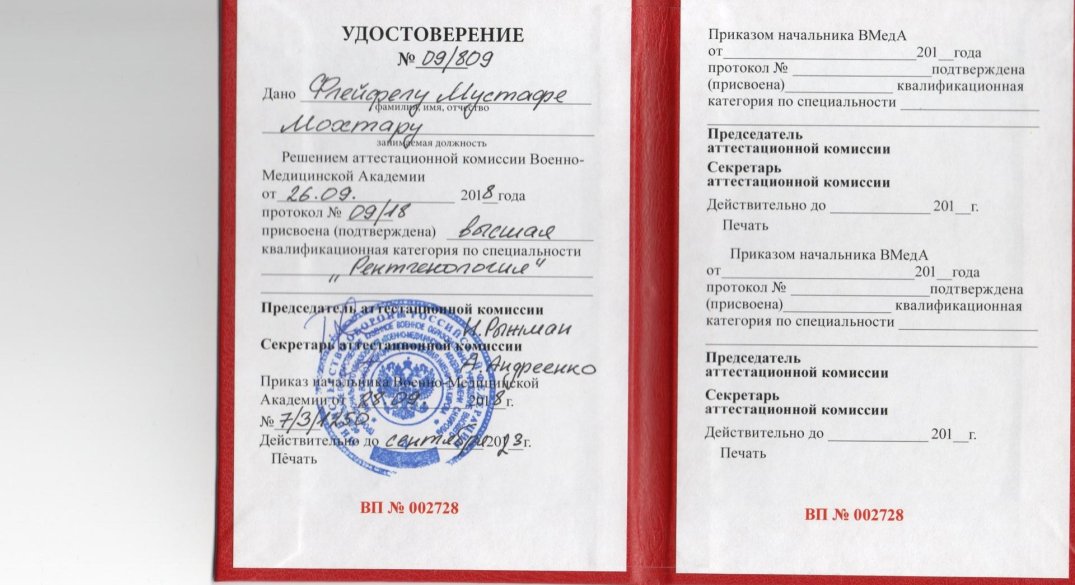 УДОСТОВЕРЕНИЕ
№ 09/809
Дано Флейфелу Мустафе
фамилия, имя, отчество
Мохтару
занимаемая должность
Решением аттестационной комиссии Военно-
Медицинской Академии
от 26.09. 2018 года
протокол № 09/18
присвоена (подтверждена) высшая
квалификационная категория по специальности
„Рентгенология"
Председатель аттестационной комиссии
И. Рыжман
Секретарь аттестационной комиссии
А. Андреенко
Приказ начальника Военно-Медицинской
Академии от 28.09. 2018 г.
№ 7/3/1250
Действительно до сентября 2023 г.
Печать
ВП № 002728
Приказом начальника ВМедА
от 201 года
протокол № подтверждена
(присвоена) квалификационная
категория по специальности
Председатель
аттестационной комиссии
Секретарь
аттестационной комиссии
Действительно до 201 г.
Печать
Приказом начальника ВМедА
от 201 года
протокол № подтверждена
(присвоена) квалификационная
категория по специальности
Председатель
аттестационной комиссии
Секретарь
аттестационной комиссии
Действительно до 201 г.
Печать
ВП № 002728